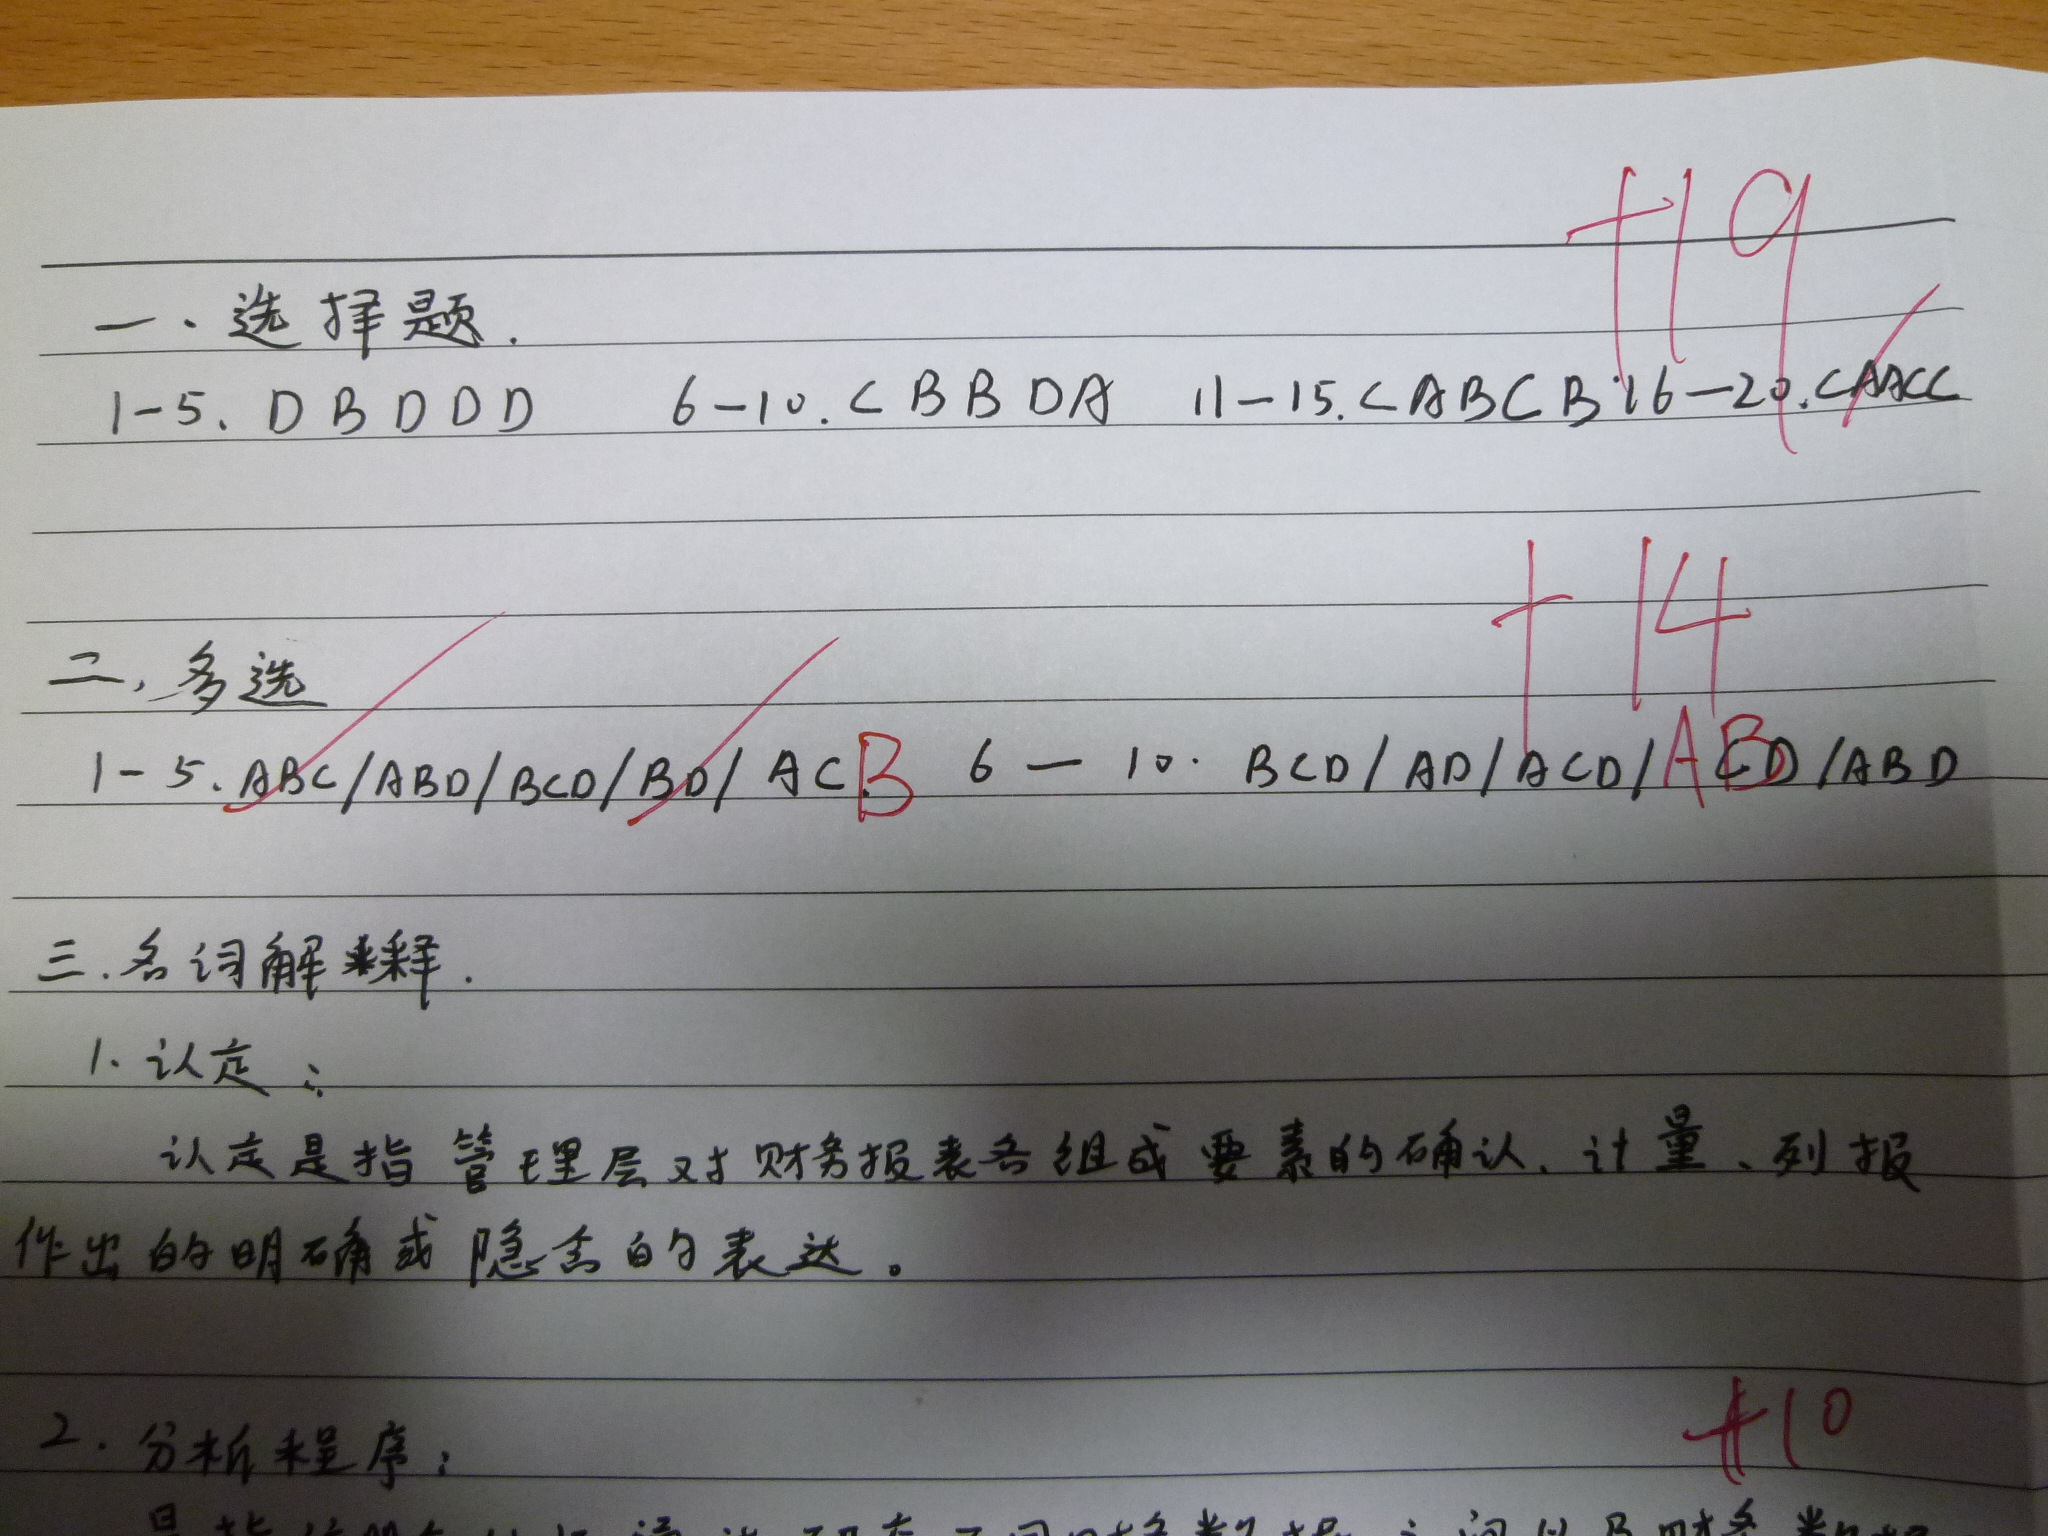 +19
一、选择题.
1-5. DBDDD 6-10. CBBDA 11-15. CABCB 16-20. CAACC
+14
二、多选
1-5. ABC/ABD/BCD/BD/ACB 6-10. BCD/AD/ACD/ABCD/ABD
三.名词解释.
1.认定:
认定是指管理层对财务报表各组成要素的确认、计量、列报
作出的明确或隐含的表达。
+10
2.分析程序: